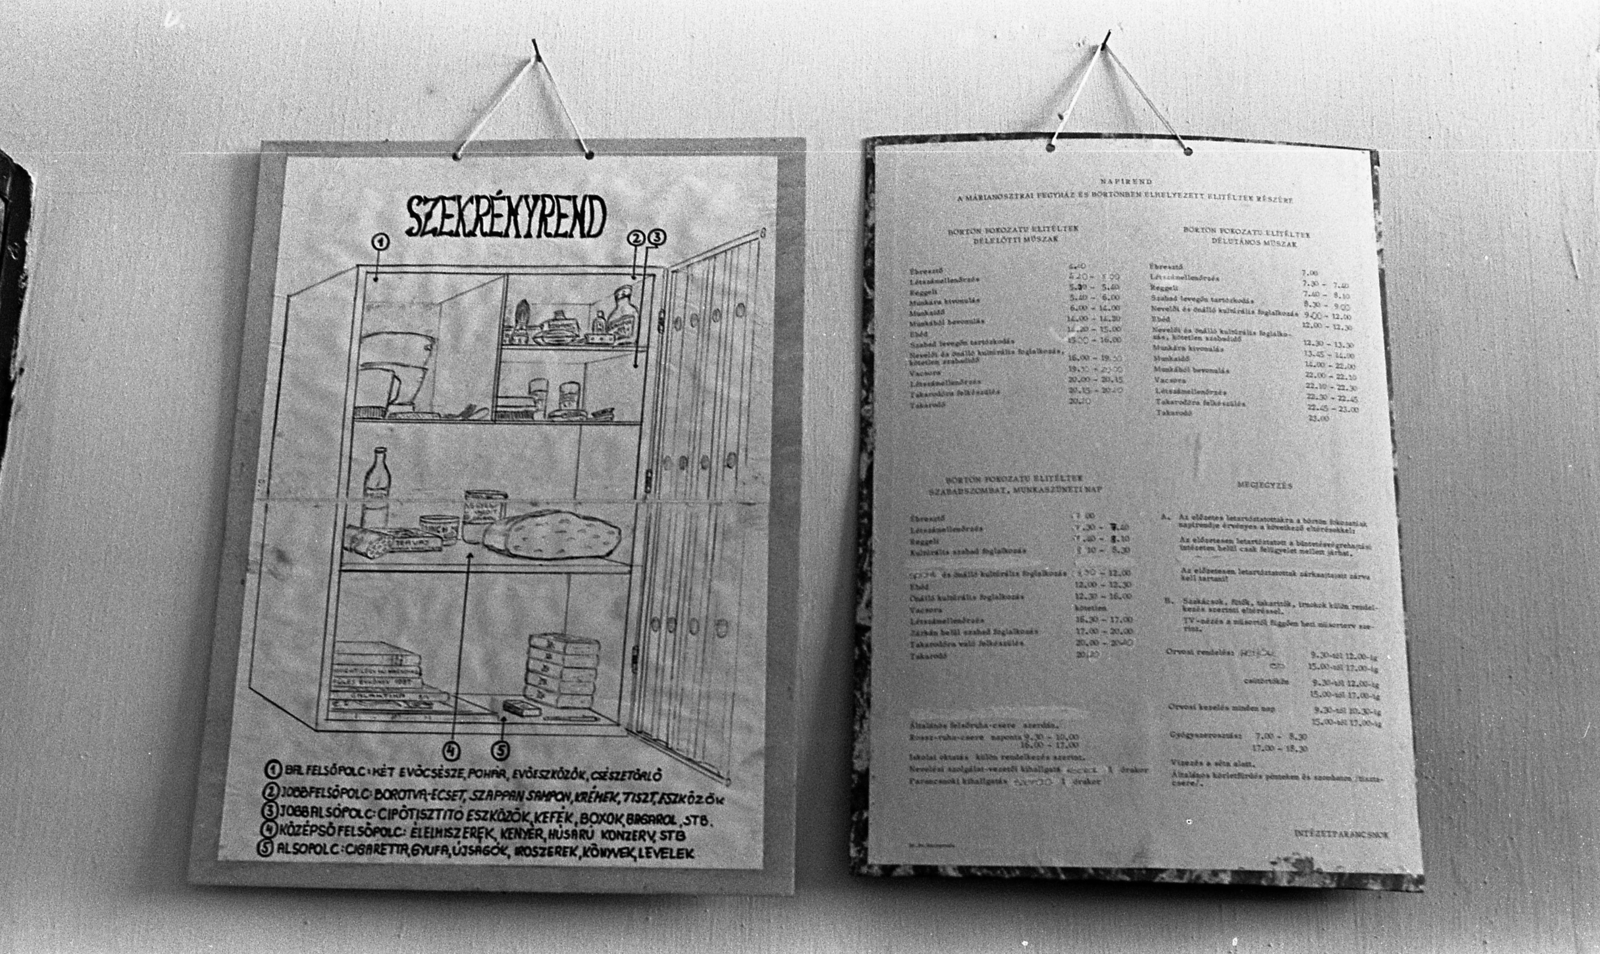 SZEKRÉNYREND
1
2 3
4 5
1 BAL FELSŐPOLC: KÉT EVŐCSÉSZE, POHÁR, EVŐESZKÖZÖK, CSÉSZETÖRLŐ
2 JOBB FELSŐPOLC: BOROTVA-ECSET, SZAPPAN SAMPON, KRÉMEK, TISZT. ESZKÖZÖK
3 JOBB ALSÓPOLC: CIPŐTISZTITÓ ESZKÖZÖK, KEFÉK, BOXOK, BAGAROL, STB.
4 KÖZÉPSŐ FELSŐPOLC: ÉLELMISZEREK, KENYÉR, HÚSÁRÚ KONZERV, STB
5 ALSOPOLC: CIGARETTA, GYUFA, ÚJSÁGOK, IROSZEREK, KÖNYVEK, LEVELEK
NAPIREND
A MÁRIANOSZTRAI FEGYHÁZ ÉS BÖRTÖNBEN ELHELYEZETT ELITÉLTEK RÉSZÉRE
BÖRTÖN FOKOZATU ELITÉLTEK
DÉLELŐTTI MŰSZAK
Ébresztő
Létszámellenőrzés
Reggeli 5.20 - 5.40
Munkára kivonulás 5.40 - 6.00
Munkaidő 6.00 - 14.00
Munkából bevonulás 14.00 - 14.20
Ebéd 14.20 - 15.00
Szabad levegőn tartózkodás - 16.00
Nevelői és önálló kulturális foglalkozás,
kötetlen szabadidő 16.00 -
Vacsora
Létszámellenőrzés 20.00 - 20.15
Takarodóra felkészülés 20.15 -
Takarodó
BÖRTÖN FOKOZATU ELITÉLTEK
DÉLUTÁNOS MŰSZAK
Ébresztő 7.00
Létszámellenőrzés 7.30 - 7.40
Reggeli 7.40 - 8.10
Szabad levegőn tartózkodás 8.30 - 9.00
Nevelői és önálló kulturális foglalkozás 9.00 - 12.00
Ebéd 12.00 - 12.30
Nevelői és önálló kulturális foglalko-
zás, kötetlen szabadidő 12.30 - 13.30
Munkára kivonulás 13.45 - 14.00
Munkaidő 14.00 - 22.00
Munkából bevonulás 22.00 - 22.10
Vacsora 22.10 - 22.30
Létszámellenőrzés 22.30 - 22.45
Takarodóra felkészülés 22.45 - 23.00
Takarodó 23.00
BÖRTÖN FOKOZATU ELITÉLTEK
SZABADSZOMBAT, MUNKASZÜNETI NAP
Ébresztő
Létszámellenőrzés
Reggeli
Kulturális szabad foglalkozás - 8.30
és önálló kulturális foglalkozás - 12.00
Ebéd 12.00 - 12.30
Önálló kulturális foglalkozás 12.30 - 16.00
Vacsora kötetlen
Létszámellenőrzés 16.30 - 17.00
Zárkán belül szabad foglalkozás 17.00 - 20.00
Takarodóra való felkészülés 20.00 -
Takarodó
Általános felsőruha-csere szerdán.
Rossz-ruha-csere naponta 9.30 - 10.00
16.00 - 17.00
Iskolai oktatás külön rendelkezés szerint.
Nevelési szolgálat-vezetői kihallgatás órakor
Parancsnoki kihallgatás órakor
MEGJEGYZÉS
A. Az előzetes letartóztatottakra a börtön fokozatúak
napirendje érvényes a következő eltérésekkel:
Az előzetesen letartóztatott a büntetésvégrehajtási
intézeten belül csak felügyelet mellett járhat.
Az előzetesen letartóztatottak zárkaajtaját zárva
kell tartani!
B. Szakácsok, fűtők, takarítók, írnokok külön rendel-
kezés szerinti eltéréssel.
TV-nézés a műsortól függően heti műsorterv sze-
rint.
Orvosi rendelés: 9.30-tól 12.00-ig
15.00-tól 17.00-ig
csütörtökön 9.30-tól 12.00-ig
15.00-tól 17.00-ig
Orvosi kezelés minden nap 9.30-tól 10.30-ig
15.00-tól 17.00-ig
Gyógyszerosztás: 7.00 - 8.30
17.00 - 18.30
Vizezés a séta alatt.
Általános körletfürdés pénteken és szombaton /tiszta-
csere/.
INTÉZETPARANCSNOK